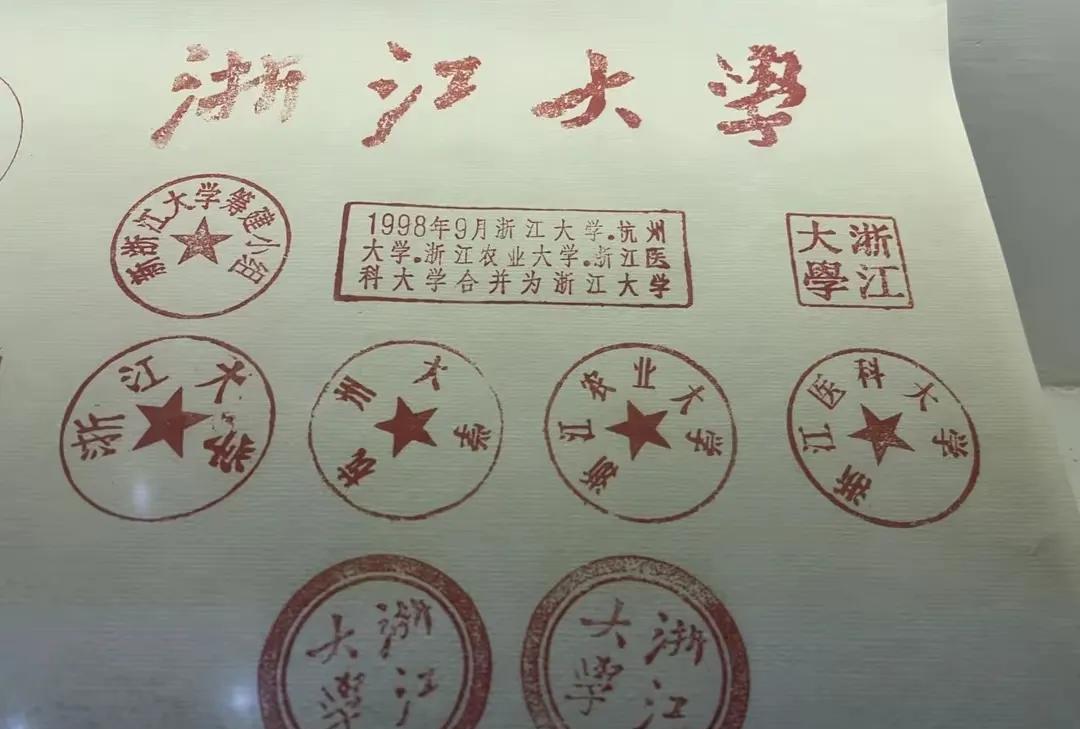 浙江大學
新浙江大学筹建小组
1998年9月浙江大学.杭州
大学.浙江农业大学.浙江医
科大学合并为浙江大学
浙江
大學
浙江大学
杭州大学
浙江农业大学
浙江医科大学
浙江
大學
浙江
大學